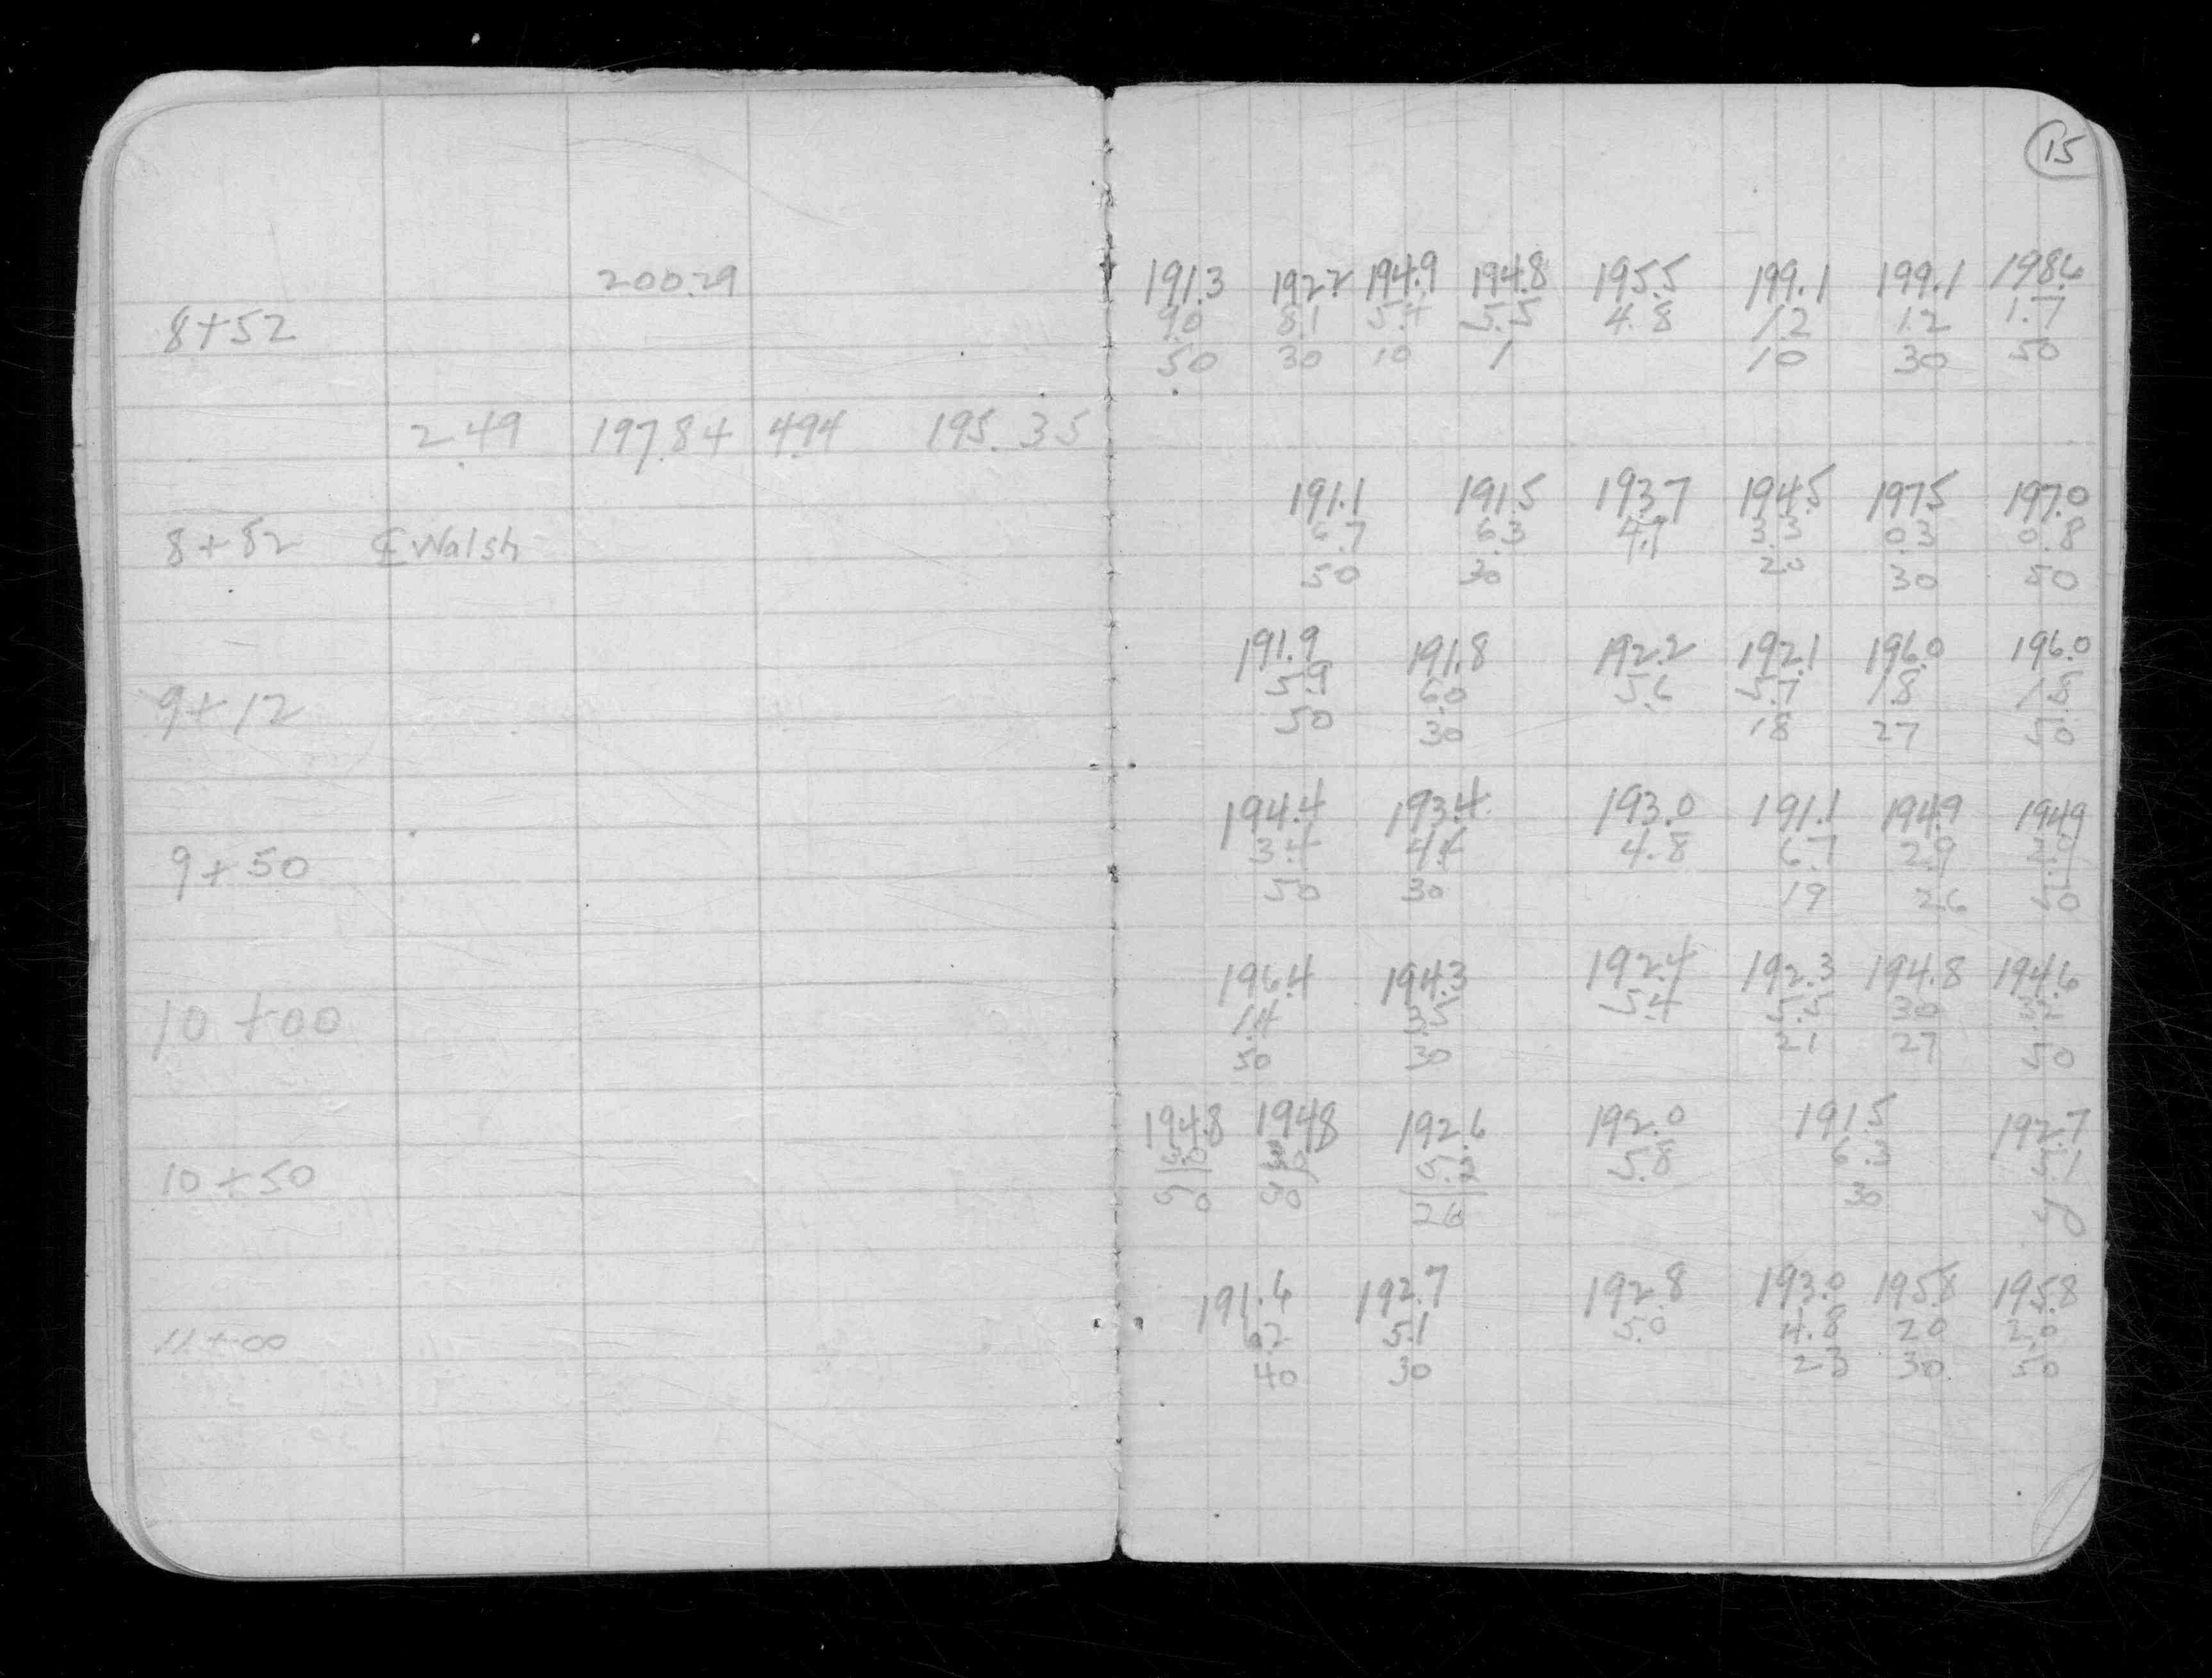 15
200.29 191.3 192.2 194.9 194.8 195.5 199.1 199.1 198.6
8+52 9.0 8.1 5.4 5.5 4.8 1.2 1.2 1.7
50 30 10 1 10 30 50
2.49 197.84 4.94 195.35
191.1 191.5 193.7 194.5 197.5 197.0
8+82 ℄ Walsh 6.7 6.3 4.1 3.3 0.3 0.8
50 30 20 30 50
191.9 191.8 192.2 192.1 196.0 196.0
9+12 5.9 6.0 5.6 5.7 1.8 1.8
50 30 18 27 50
194.4 193.4 193.0 191.1 194.9 194.9
9+50 3.4 4.4 4.8 6.7 2.9 2.9
50 30 19 26 50
196.4 194.3 192.4 192.3 194.8 194.6
10+00 1.4 3.5 5.4 5.5 3.0 3.2
50 30 21 27 50
194.8 194.8 192.6 192.0 191.5 192.7
10+50 3.0 3.0 5.2 5.8 6.3 5.1
50 30 26 30 50
191.6 192.7 192.8 193.0 195.8 195.8
11+00 6.2 5.1 5.0 4.8 2.0 2.0
40 30 23 30 50